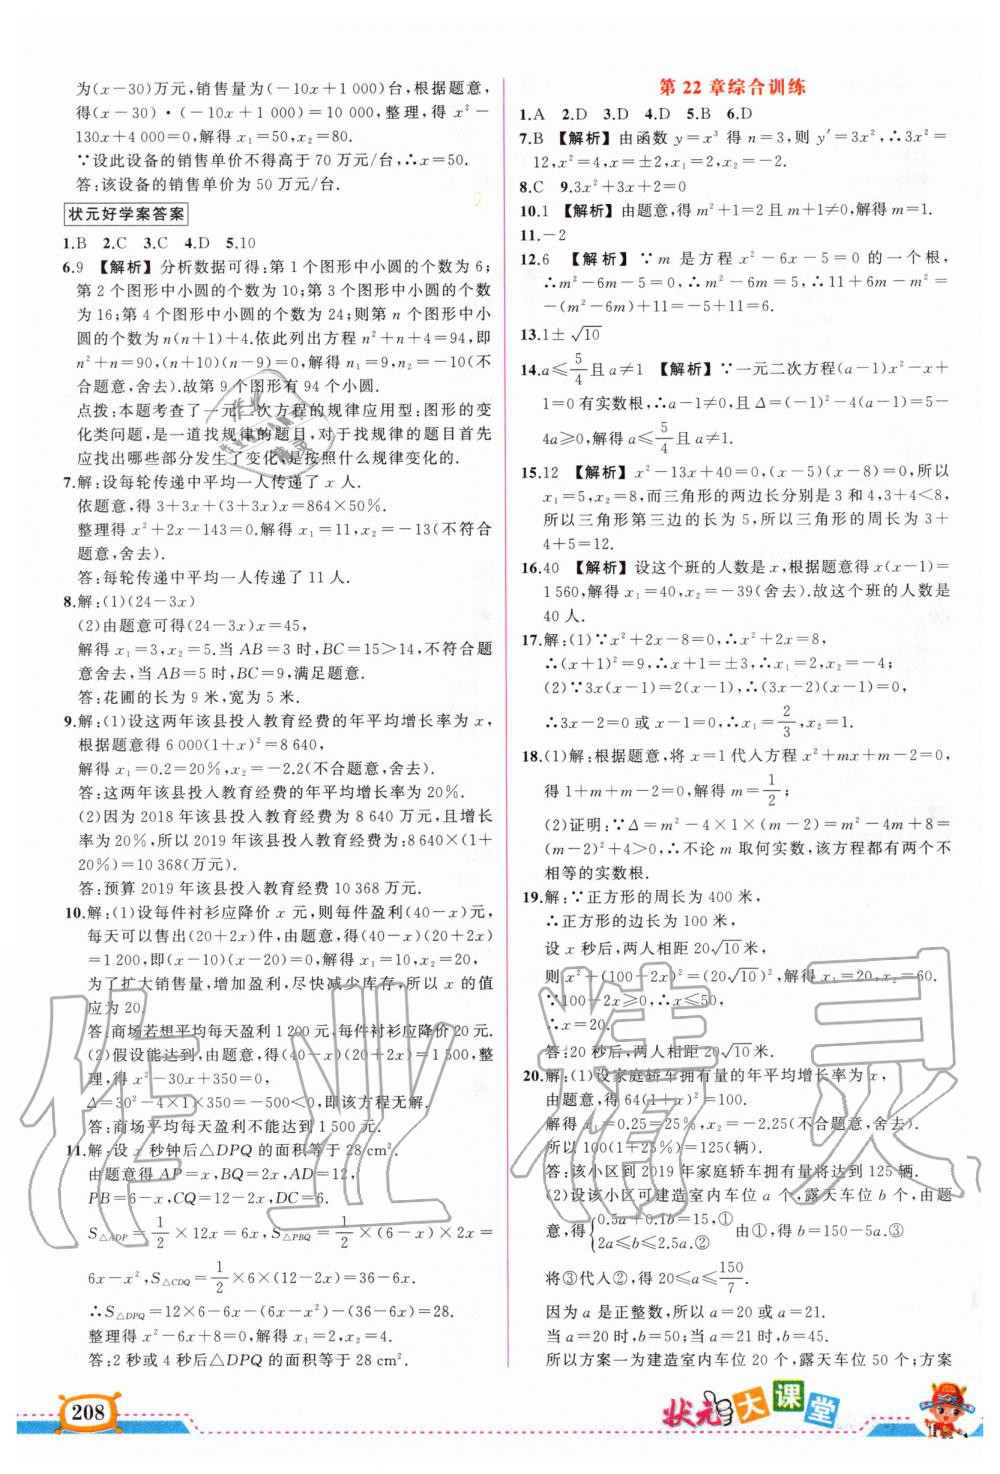 为(x－30)万元,销售量为(－10x＋1 000)台,根据题意,
得(x－30)·(－10x＋1 000)＝10 000,整理,得 x²－
130x＋4 000＝0,解得 x₁＝50,x₂＝80.
∵设此设备的销售单价不得高于 70 万元,∴x＝50.
答:该设备的销售单价为 50 万元.
状元好学案答案
1.B 2.C 3.C 4.D 5.10
6.9 【解析】分析数据可得:第 1 个图形中小圆的个数为 6;
第 2 个图形中小圆的个数为 10;第 3 个图形中小圆的个数
为 16;第 4 个图形中小圆的个数为 24;则第 n 个图形中小
圆的个数为 n(n＋1)＋4.依此列出方程 n²＋n＋4＝94,即
n²＋n＝90,(n＋10)(n－9)＝0,解得 n₁＝9,n₂＝－10(不
合题意,舍去).故第 9 个图形有 94 个小圆.
点拨:本题考查了一元二次方程的规律应用型:图形的变
化类问题,是一道找规律的题目,对于找规律的题目首先
应找出哪些部分发生了变化,是按照什么规律变化的.
7.解:设每轮传递中平均一人传递了 x 人.
依题意,得 3＋3x＋(3＋3x)x＝864×50%.
整理得 x²＋2x－143＝0.解得 x₁＝11,x₂＝－13(不符合
题意,舍去).
答:每轮传递中平均一人传递了 11 人.
8.解:(1)(24－3x)
(2)由题意可得(24－3x)x＝45,
解得 x₁＝3,x₂＝5.当 AB＝3 时,BC＝15＞14,不符合题
意舍去,当 AB＝5 时,BC＝9,满足题意.
答:花圃的长为 9 米,宽为 5 米.
9.解:(1)设这两年该县投入教育经费的年平均增长率为 x,
根据题意得 6 000(1＋x)²＝8 640,
解得 x₁＝0.2＝20%,x₂＝－2.2(不符合题意,舍去).
答:这两年该县投入教育经费的年平均增长率为 20%.
(2)因为 2018 年该县投入教育经费为 8 640 万元,且增长
率为 20%,所以 2019 年该县投入教育经费为:8 640×(1＋
20%)＝10 368(万元).
答:预算 2019 年该县投入教育经费 10 368 万元.
10.解:(1)设每件衬衫应降价 x 元,则每件盈利(40－x)元,
每天可以售出(20＋2x)件,由题意,得(40－x)(20＋2x)
＝1 200,即(x－10)(x－20)＝0,解得 x₁＝10,x₂＝20,
为了扩大销售量,增加盈利,尽快减少库存,所以 x 的值
应为 20.
答:商场若想平均每天盈利 1 200 元,每件衬衫应降价 20 元.
(2)假设能达到,由题意,得(40－x)(20＋2x)＝1 500,整
理,得 x²－30x＋350＝0,
Δ＝30²－4×1×350＝－500＜0,即该方程无解.
答:商场平均每天盈利不能达到 1 500 元.
11.解:设 x 秒钟后△DPQ 的面积等于 28 cm².
由题意得 AP＝x,BQ＝2x,AD＝12,
PB＝6－x,CQ＝12－2x,DC＝6.
S△ADP＝1/2×12x＝6x,S△PBQ＝1/2×(6－x)×2x＝
6x－x²,S△CDQ＝1/2×6×(12－2x)＝36－6x.
∴S△DPQ＝12×6－6x－(6x－x²)－(36－6x)＝28.
整理得 x²－6x＋8＝0,解得 x₁＝2,x₂＝4.
答:2 秒或 4 秒后△DPQ 的面积等于 28 cm².
208
第 22 章综合训练
1.A 2.D 3.D 4.D 5.B 6.D
7.B 【解析】由函数 y＝x³ 得 n＝3,则 y′＝3x²,∴3x²＝
12,x²＝4,x＝±2,x₁＝2,x₂＝－2.
8.C 9.3x²＋3x＋2＝0
10.1 【解析】由题意,得 m²＋1＝2 且 m＋1≠0,解得 m＝1.
11.－2
12.6 【解析】∵m 是方程 x²－6x－5＝0 的一个根,
∴m²－6m－5＝0,∴m²－6m＝5,∴11＋6m－m²＝
－(m²－6m)＋11＝－5＋11＝6.
13.1±√10
14.a≤5/4且 a≠1 【解析】∵一元二次方程(a－1)x²－x＋
1＝0 有实数根,∴a－1≠0,且 Δ＝(－1)²－4(a－1)＝5－
4a≥0,解得 a≤5/4且 a≠1.
15.12 【解析】x²－13x＋40＝0,(x－5)(x－8)＝0,所以
x₁＝5,x₂＝8,而三角形的两边长分别是 3 和 4,3＋4＜8,
所以三角形第三边的长为 5,所以三角形的周长为 3＋
4＋5＝12.
16.40 【解析】设这个班的人数是 x,根据题意得 x(x－1)＝
1 560,解得 x₁＝40,x₂＝－39(舍去).故这个班的人数是
40 人.
17.解:(1)∵x²＋2x－8＝0,∴x²＋2x＝8,
∴(x＋1)²＝9,∴x＋1＝±3,∴x₁＝2,x₂＝－4;
(2)∵3x(x－1)＝2(x－1),∴(3x－2)(x－1)＝0,
∴3x－2＝0 或 x－1＝0,∴x₁＝2/3,x₂＝1.
18.(1)解:根据题意,将 x＝1 代入方程 x²＋mx＋m－2＝0,
得 1＋m＋m－2＝0,解得 m＝1/2;
(2)证明:∵Δ＝m²－4×1×(m－2)＝m²－4m＋8＝
(m－2)²＋4＞0,∴不论 m 取何实数,该方程都有两个不
相等的实数根.
19.解:∵正方形的周长为 400 米,
∴正方形的边长为 100 米,
设 x 秒后,两人相距 20√10米,
则 x²＋(100－2x)²＝(20√10)²,解得 x₁＝20,x₂＝60.
∵100－2x≥0,∴x≤50,
∴x＝20.
答:20 秒后,两人相距 20√10米.
20.解:(1)设家庭轿车拥有量的年平均增长率为 x,
由题意,得 64(1＋x)²＝100.
解得 x₁＝0.25＝25%,x₂＝－2.25(不合题意,舍去).
所以 100(1＋25%)＝125(辆).
答:该小区到 2019 年家庭轿车拥有量将达到 125 辆.
(2)设该小区可建造室内车位 a 个,露天车位 b 个,由题
意,得{0.5a＋0.1b＝15,① 2a≤b≤2.5a.② 由①,得 b＝150－5a.③
将③代入②,得 20≤a≤150/7.
因为 a 是正整数,所以 a＝20 或 a＝21.
当 a＝20 时,b＝50;当 a＝21 时,b＝45.
所以方案一为建造室内车位 20 个,露天车位 50 个;方案
状元大课堂
作业精灵